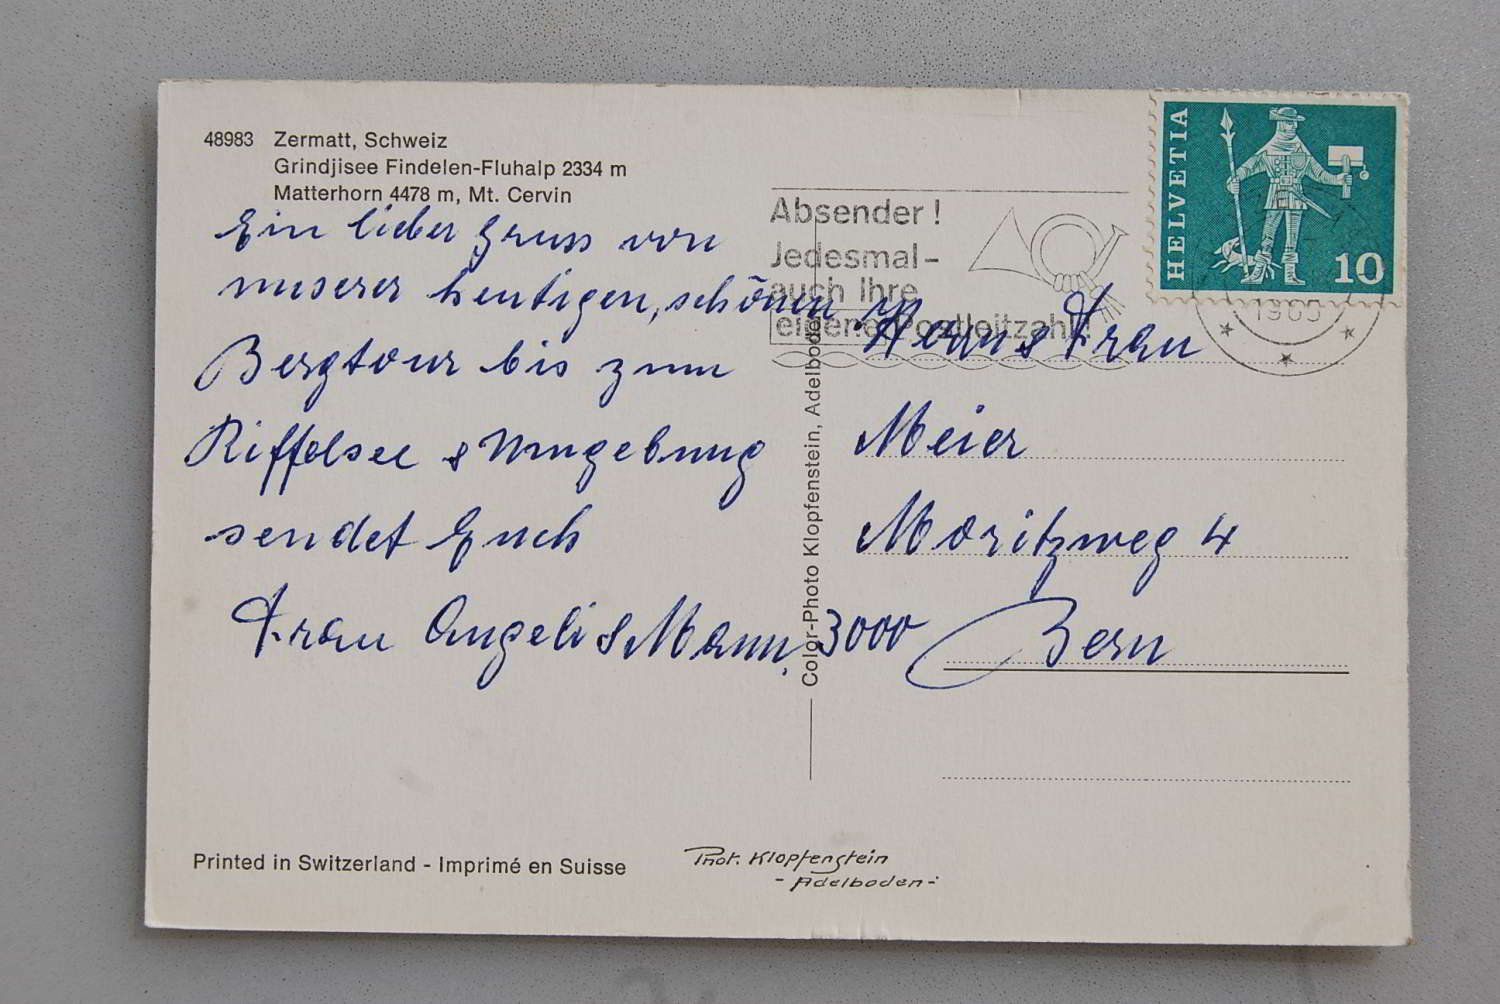 48983 Zermatt, Schweiz
Grindjisee Findelen-Fluhalp 2334 m
Matterhorn 4478 m, Mt. Cervin
Ein lieber Gruss von
unserer heutigen, schönen
Bergtour bis zum
Riffelsee & Umgebung
sendet Euch
Frau Angeli & Mann.
Absender!
Jedesmal-
auch Ihre
eigene Postleitzahl!
HELVETIA
10
Herrn & Frau
Meier
Moritzweg 4
3000 Bern
Color-Photo Klopfenstein, Adelboden
Printed in Switzerland - Imprimé en Suisse
Phot. Klopfenstein
- Adelboden -